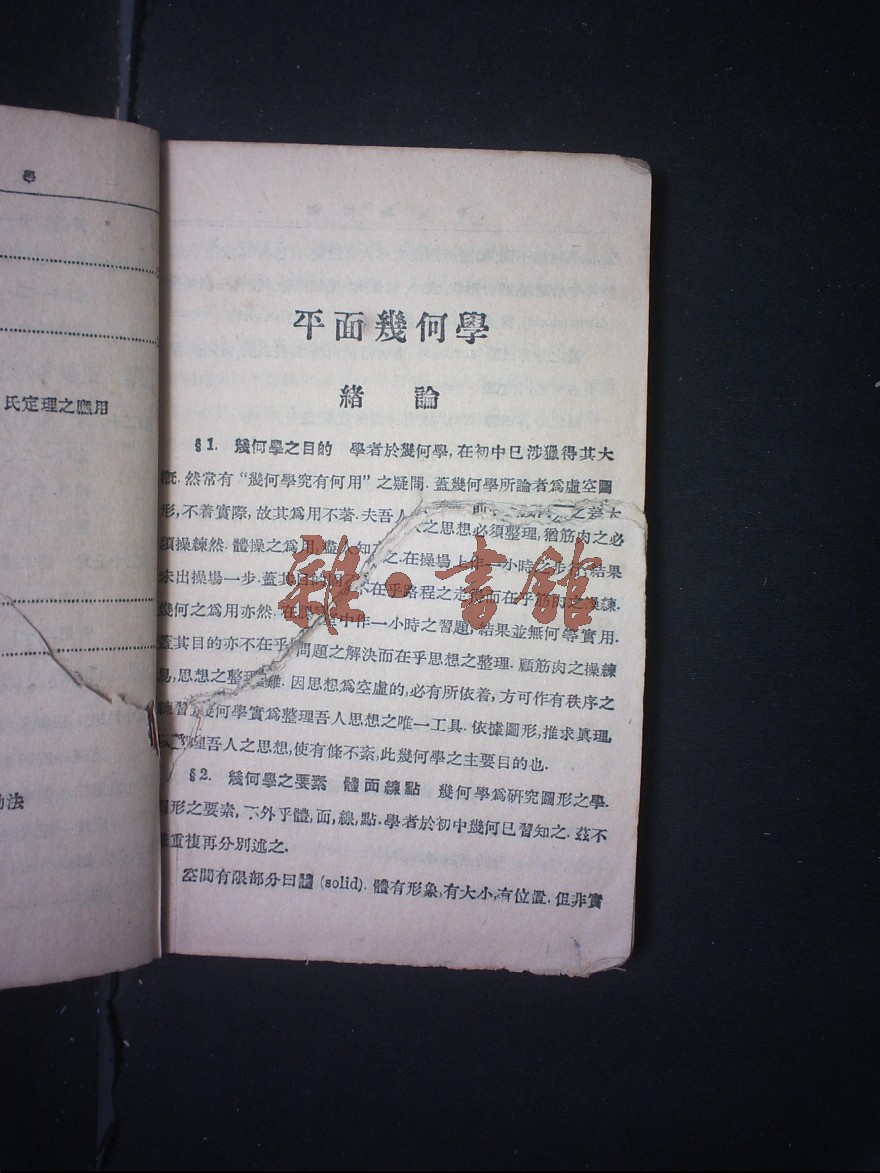 學
氏定理之應用
平面幾何學
緒 論
§1. 幾何學之目的 學者於幾何學,在初中已涉獵得其大
概. 然常有“幾何學究有何用”之疑問. 蓋幾何學所論者爲虛空圖
形,不着實際,故其爲用不著. 夫吾人
之思想必須整理,猶筋肉之必
須操練然. 體操之爲用,盡人知
之.在操場上作一小時之步
結果
未出操場一步.蓋其目的
不在乎路程之走
而在乎筋肉之
練.
幾何之爲用亦然. 在
中作一小時之習題,結果並無何等實用.
蓋其目的亦不在乎
問題之解決而在乎思想之整理. 顧筋肉之操練
易,思想之整理
難. 因思想爲空虛的,必有所依着, 方可作有秩序之
練習.
幾何學實爲整理吾人思想之唯一工具. 依據圖形,推求眞理,
理吾人之思想,使有條不紊,此幾何學之主要目的也.
§2. 幾何學之要素 體面線點 幾何學爲研究圖形之學.
圖形之要素, 不外乎體,面,線,點.學者於初中幾何已習知之. 茲不
重複再分別述之.
空間有限部分曰體 (solid). 體有形象,有大小,有位置. 但非實
法
雜·書館